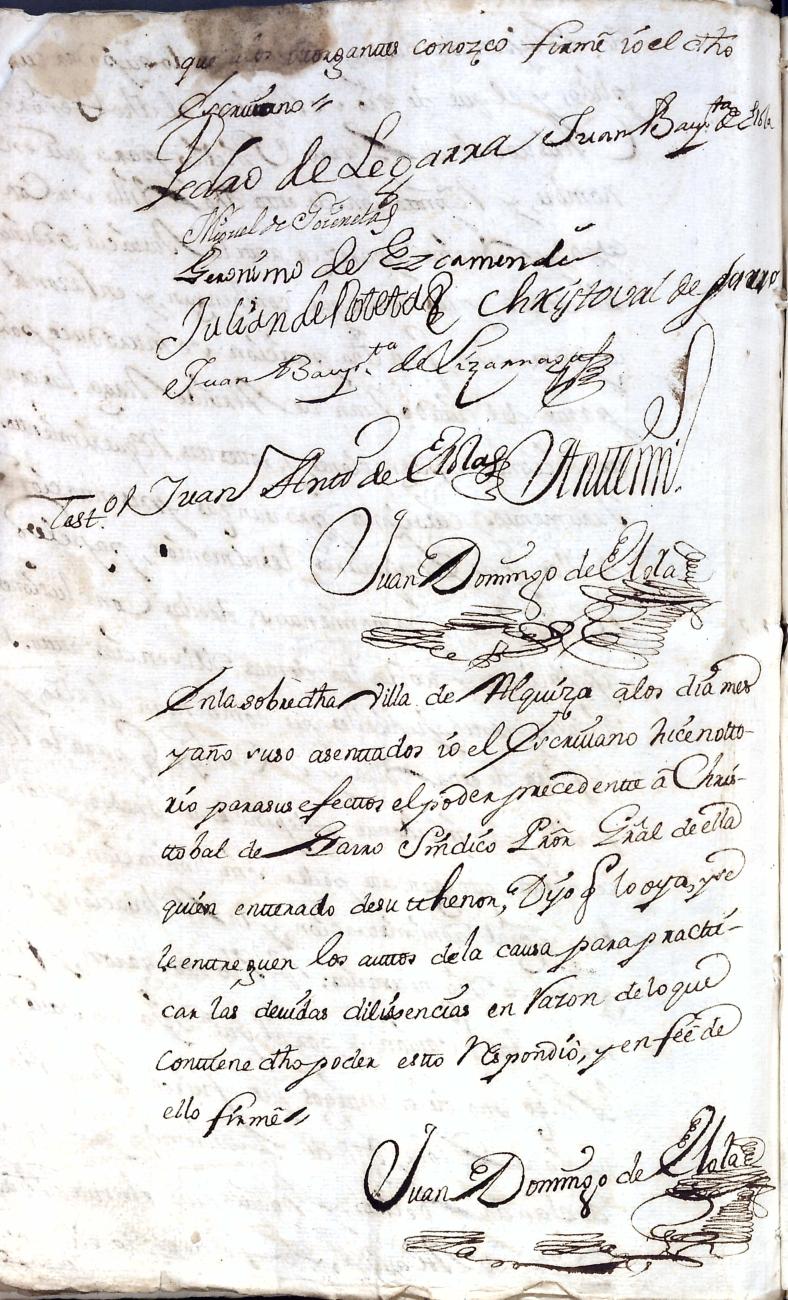 que a los otorgantes conozco firmê io el dho
Escriuano //
Pedro de Legarra Juan Baup.ta de Elola
Miguel de Gorenetas
Geronimo de Ezcamendi
Julian de Rotetas Christoval de Garro
Juan Baup.ta de Lizarraga
Test.o Juan Ant.o de Elola Antemi
Juan Domingo de Elola
En la sobredha Villa de Alquiza âlos dia mes
y año suso asenttados io el Escriuano hice notto-
rio para sus efecttos el poder precedentte â Chris-
ttobal de Garro Sindico Prôr Grâl de ella
quien entterado de su tthenor, Dijo q lo oya, y se
le enttreguen los auttos de la causa para practti-
car las deuidas dilixencias en Razon de lo que
conttiene dho poder estto Respondiò, y en feê de
ello firmê //
Juan Domingo de Elola